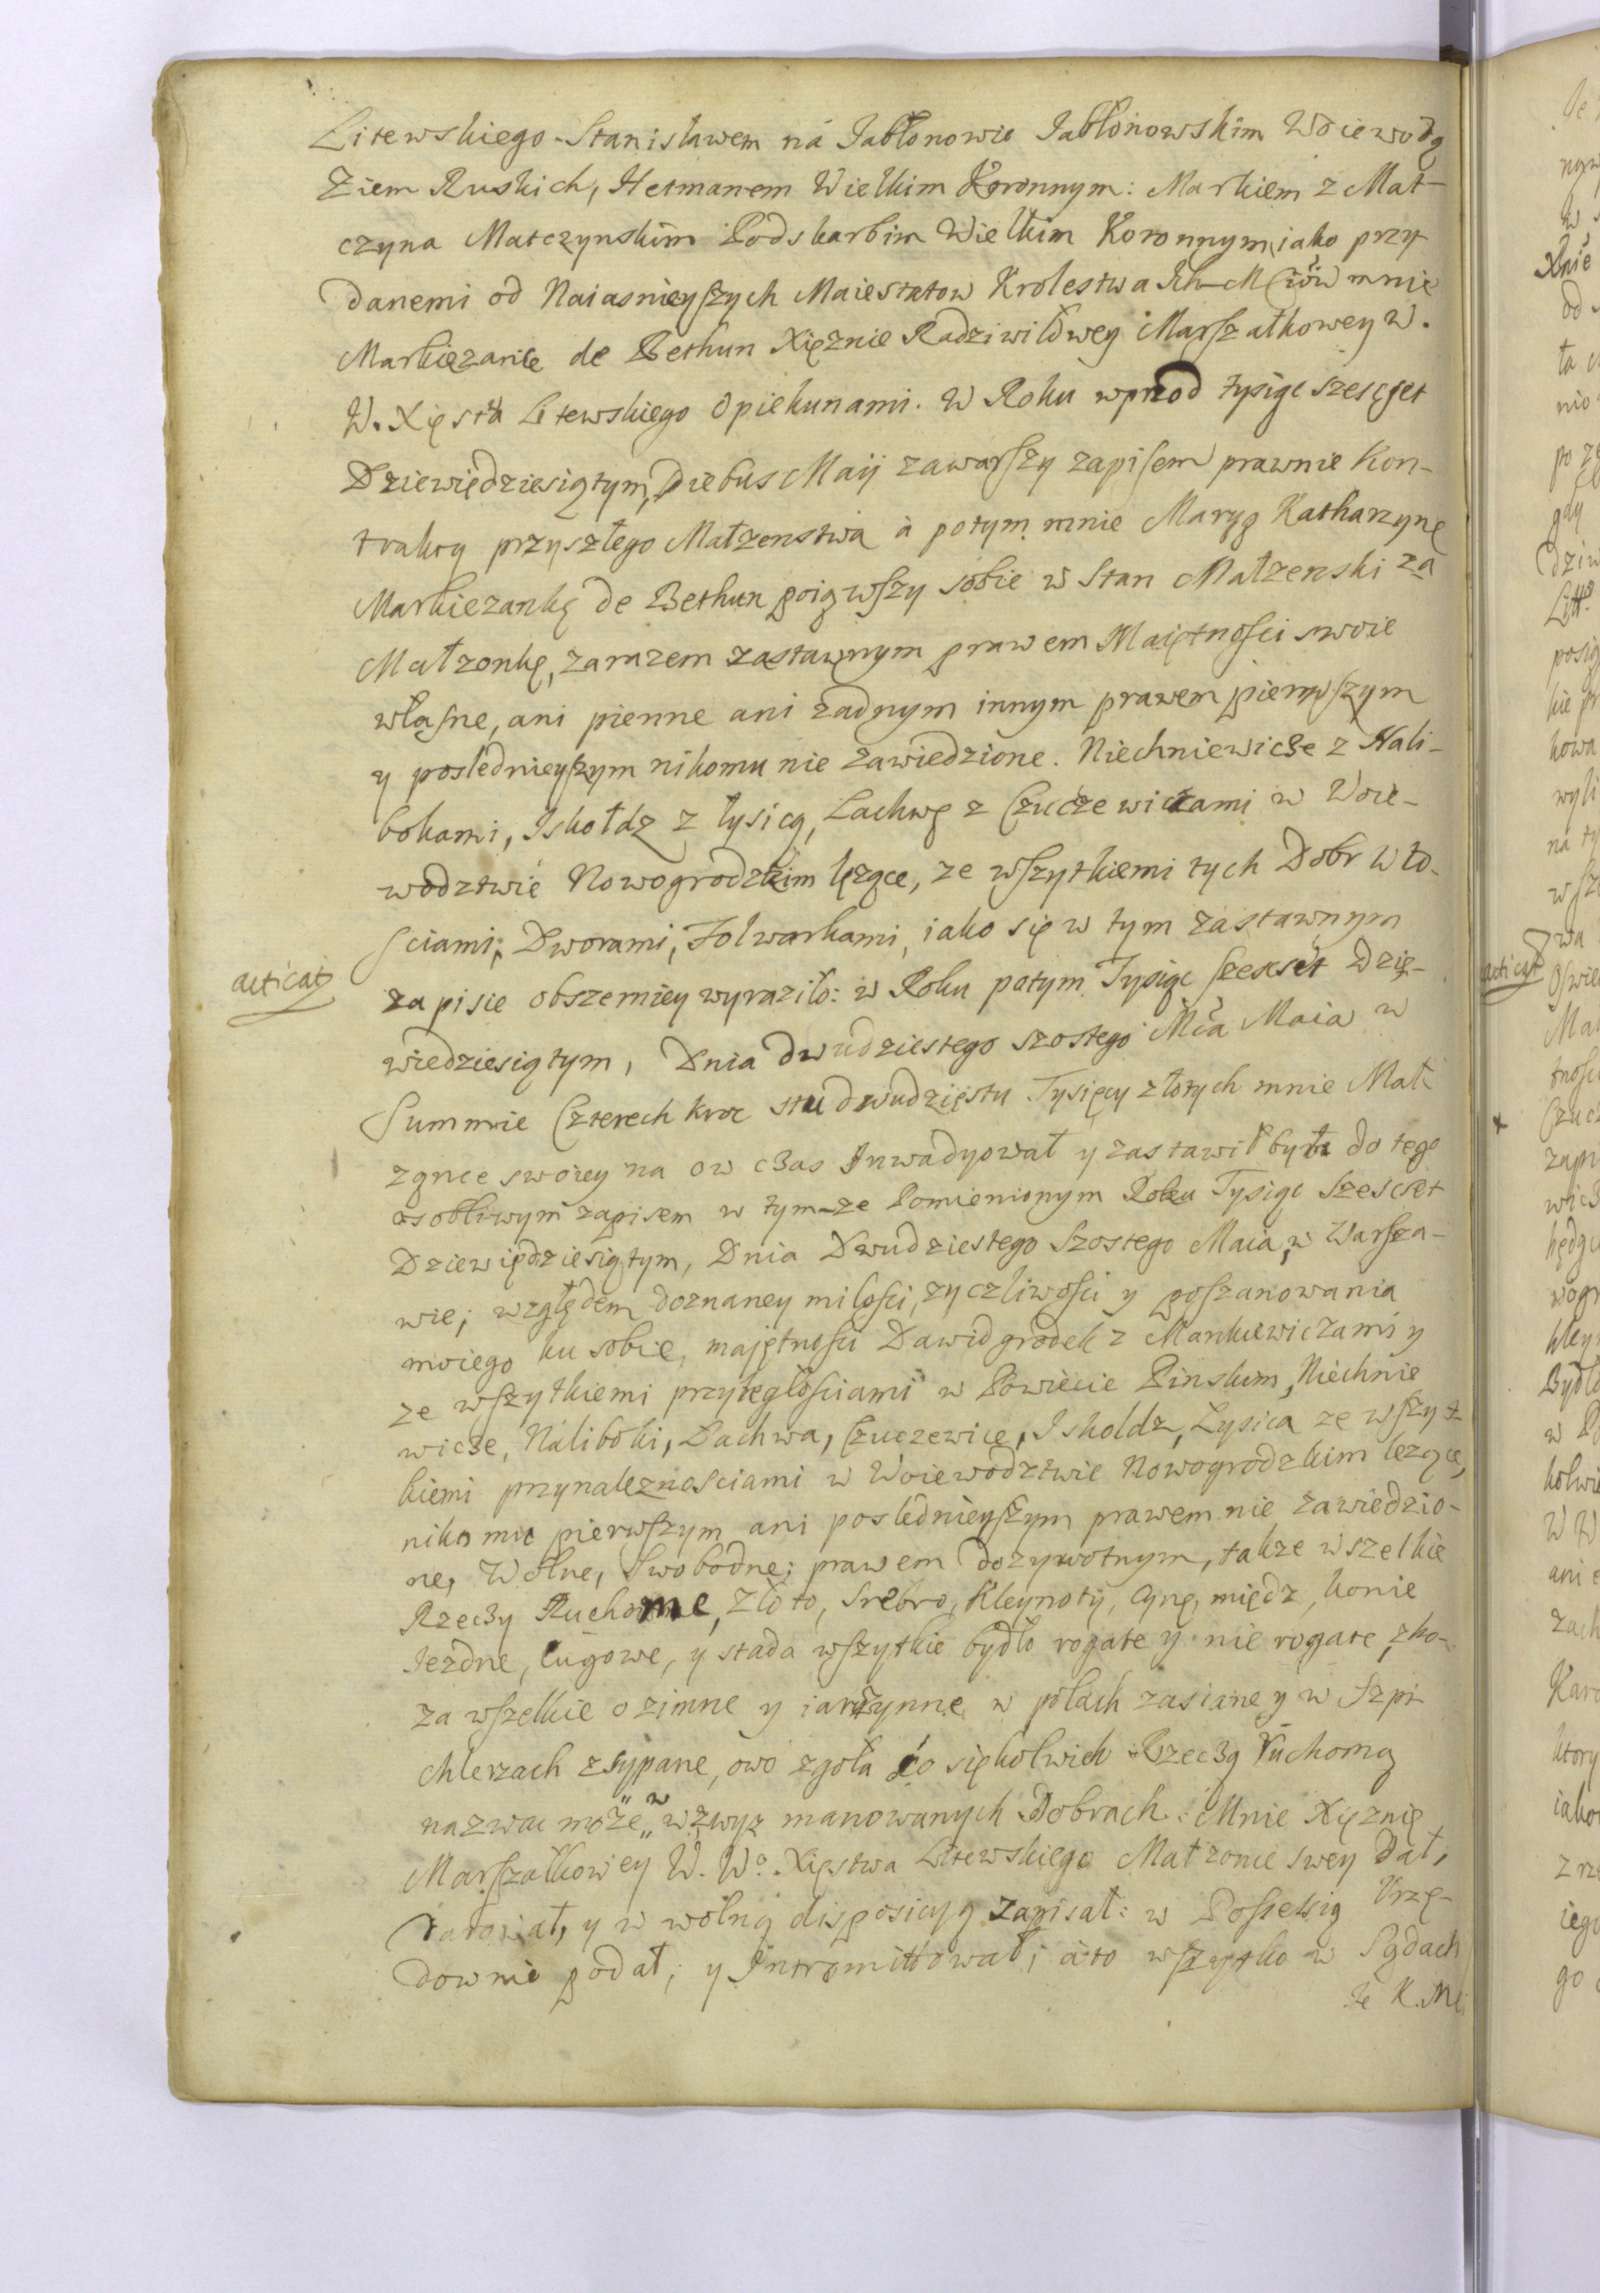 Litewskiego. Stanisławem ná Jabłonowie Jabłonowskim Woiewodą
Ziem Ruskich, Hetmanem Wielkim Koronnym: Markiem z Mat-
czyna Matczynskim Podskarbim Wielkim Koronnym, iako przy
danemi od Naiasnieyszych Maiestatow Krolestwa Ich Mciów mnie
Markiezanie de Bethun Xiężnie Radziwiłowey Marszałkowey W.
W. Xięstá Litewskiego Opiekunami. W Roku wprzod tysiąc szescset
Dziewiędziesiątym, Diebus Maij zawarszy zapisem prawnie Kon-
trakty przyszłego Małzenstwa à potym mnie Maryą Katharzynę
Markiezankę de Bethun poiąwszy sobie w Stan Małzenski za
Małzonkę, zarazem zastawnym prawem Maiętności swoie
własne, ani pienne ani zadnym innym prawem pierwszym
y poslednieyszym nikomu nie zawiedzione. Niechniewicze z Nali-
bokami, Iskołdz z Łysicą, Lachwę z Czuczewiczami w Woie-
wodztwie Nowogrodzkim lęzące, ze wszytkiemi tych Dobr Wło-
sciami, Dworami, Folwarkami, iako się w tym zastawnym
acticat
zapisie obszerniey wyraziło: w Roku potym Tysiąc szescset Dzie-
wiedziesiątym, Dnia dwudziestego szostego Mca Maia w
Summie Czterech kroc stu dwudziestu Tysięcy złotych mnie Mał
zonce swoiey na ow czas Inwadyował y zastawił był à do tego
osobliwym zapisem w tym-ze Pomienionym Roku Tysiąc Szescset
Dziewiędziesiątym, Dnia Dwudziestego Szostego Maia, w Warsza-
wie; względem doznaney milosci, zyczliwosci y poszanowania
moiego ku sobie, majętnosci Dawidgrodek z Mankiewiczami y
ze wszytkiemi przyległosciami w Powiecie Pinskim, Niechnie
wicze, Náliboki, Lachwa, Czuczewice, Iskoldz, Lysica ze wszyt
kiemi przynależnosciami w Woiewodztwie Nowogrodzkim lezące,
nikomu pierwszym ani poslednieyszym prawem nie zawiedzio-
ne, Wolne, Swobodne; prawem dozywotnym, takze wszelkie
Rzeczy Ruchome, Złoto, Srebro, Kleynoty, Cynę, miedz, konie
Iezdne, Cugowe, y stada wszytkie bydło rogate y nie rogate, zbo-
za wszelkie ozimne y iarzynne w polach zasiane y w Szpi
chlerzach zsypane, owo zgoła co siękolwiek Rzeczą ruchomą
nazwac może w wzwyż mianowanych Dobrach. Mnie Xięznie
Marszałkowey W. Wo. Xięstwa Litewskiego Małzonce swey Dał,
Darował, y w wolną disposicyą zapisał: w Possessią Urzę-
downie podał; y Intromittował; à to wszytko w Sądach
Ie K. Mci